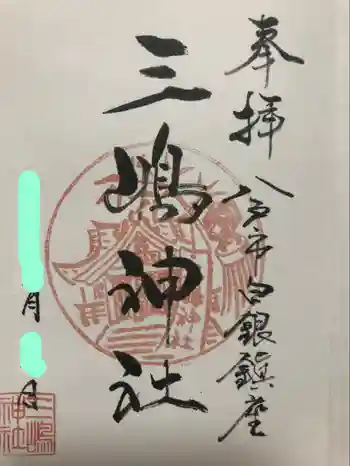 奉拝
八戸市白銀鎮座
三嶋神社
月 日
三嶋神社